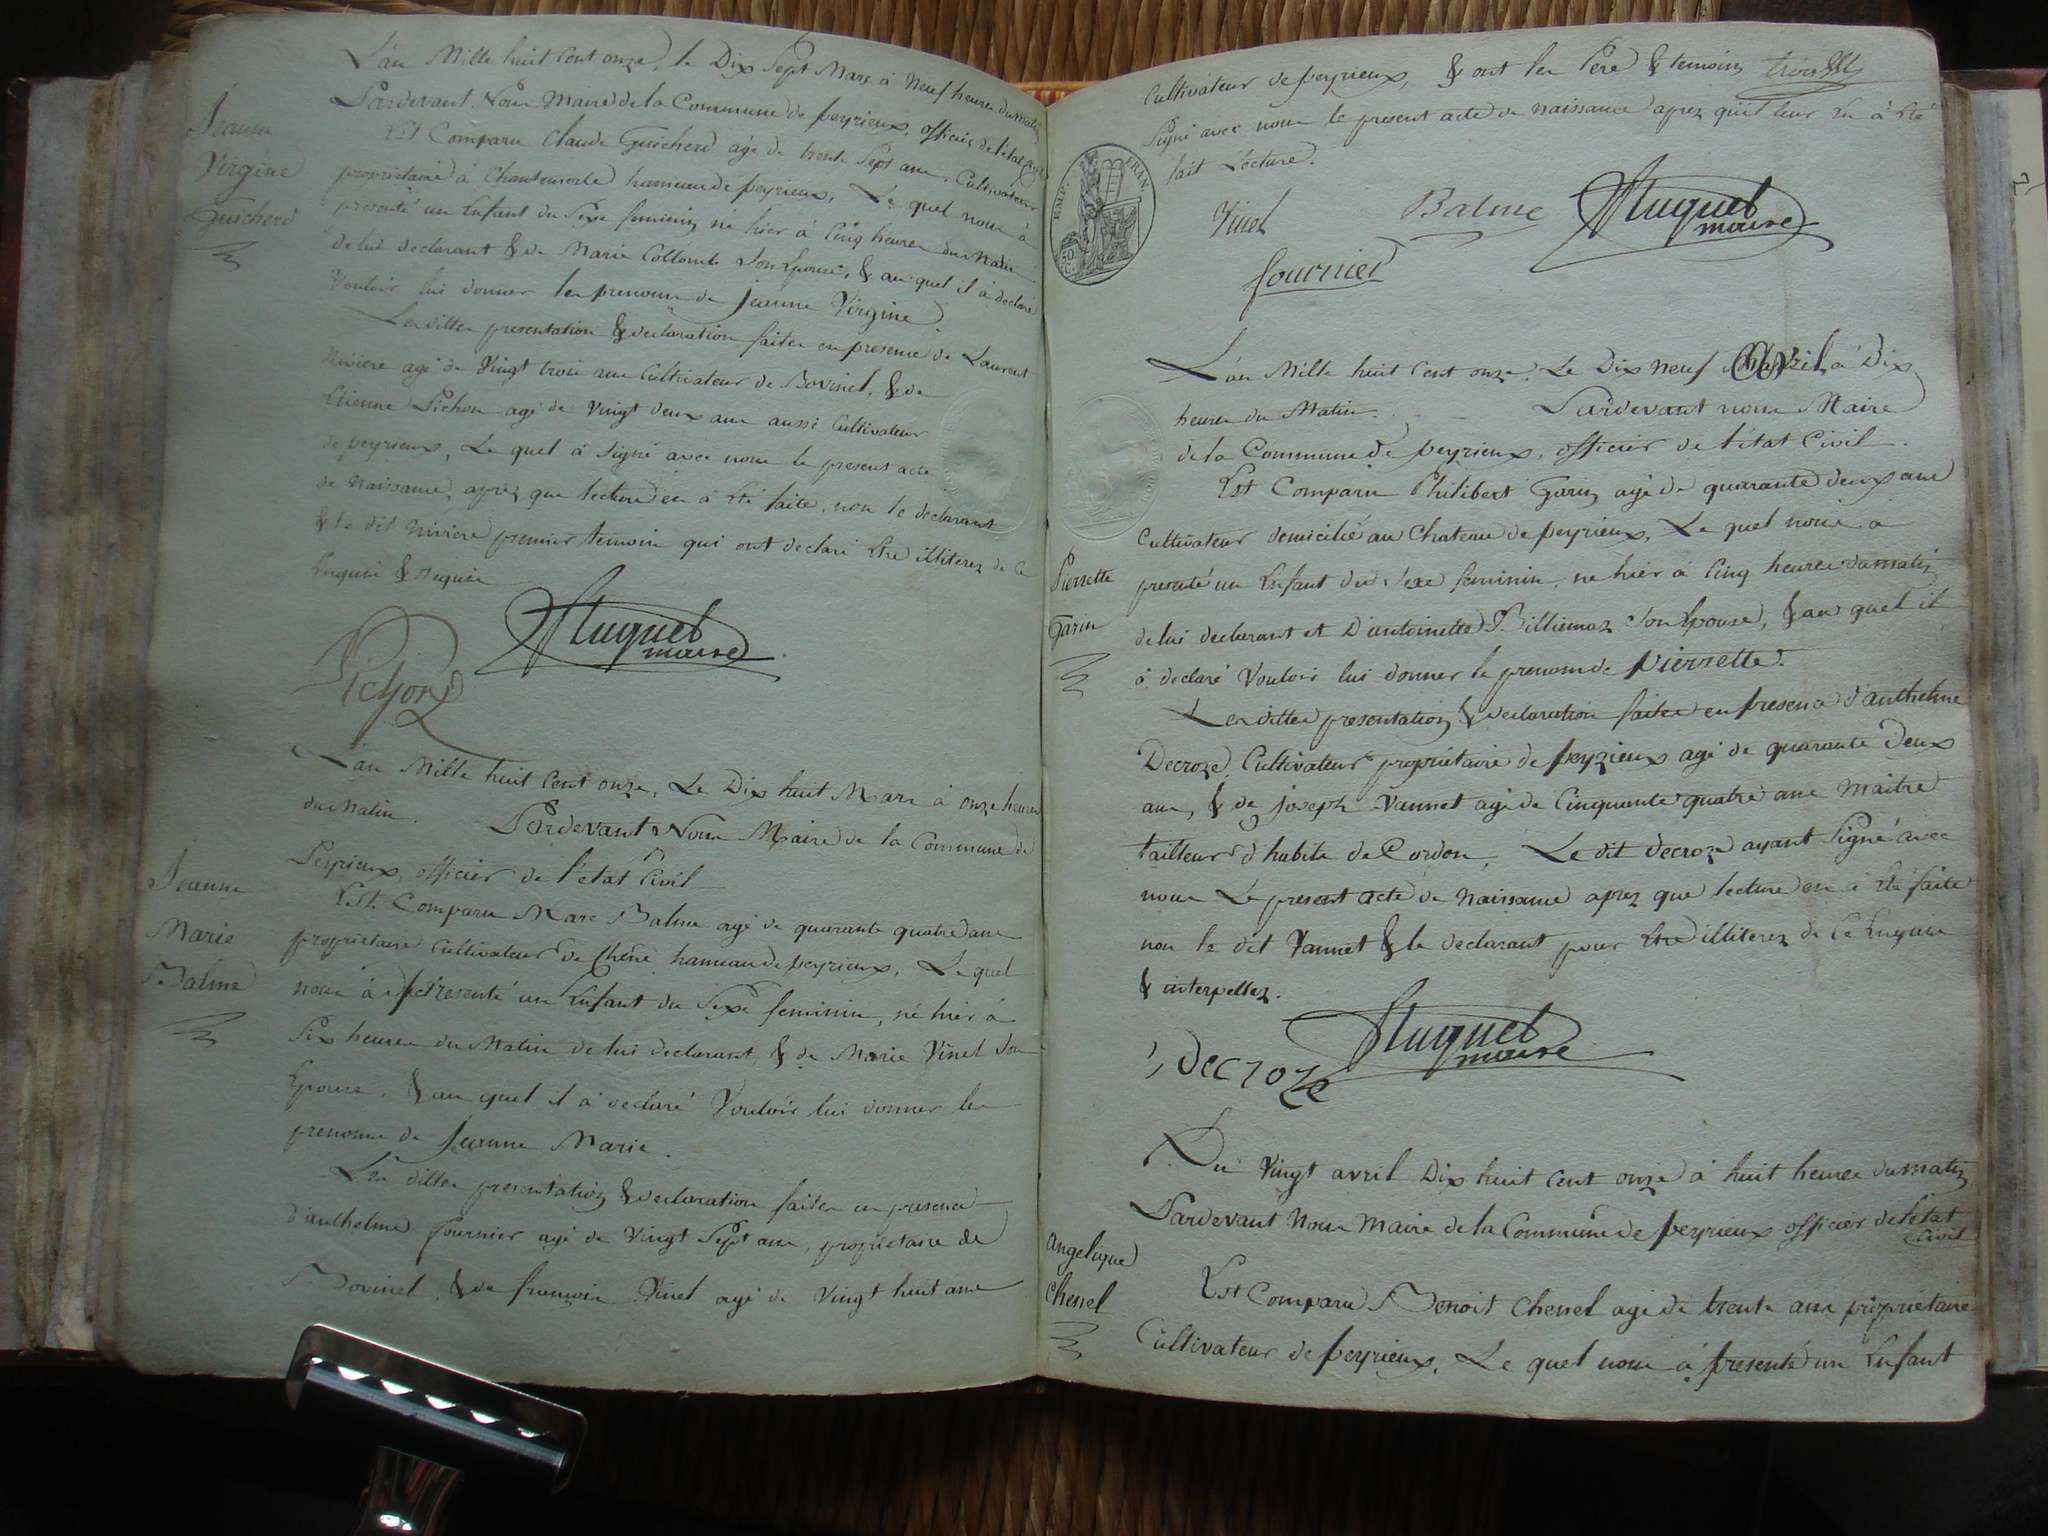 L'an Mille huit Cent onze, le Dix Sept Mars à Neuf heures du matin
Pardevant Nous Maire de la Commune de peyrieux, officier de l'état civil
Est Comparu Claude Guicherd agé de trente Sept ans, Cultivateur
propriétaire à Chantemerle hameau de peyrieux, Le quel nous à
presenté un Enfant du Sexe feminin né hier à Cinq heures du Matin
de lui declarant & de Marie Collomb Son Epouse, & au quel il à declaré
Vouloir lui donner les prenoms de jeanne Virgine
Les dittes presentation & declaration faites en presence de Laurent
Niviere agé de Vingt trois ans Cultivateur de Bovinel, & de
Etienne Pichon agé de Vingt deux ans aussi Cultivateur
de peyrieux, Le quel à Signé avec nous le present acte
de Naissance, aprez que lecture en à été faite, non le declarant
& le dit Niviere premier temoin qui ont declaré Etre illiterez de Ce
Enquis & requis
Jeanne
Virgine
Guicherd
Pichon
Huguet
maire
L'an Mille huit Cent onze, Le Dix huit Mars à onze heures
du Matin. Pardevant Nous Maire de la Commune de
Peyrieux, officier de l'état Civil
Est Comparu Marc Balme agé de quarante quatre ans
propriétaire Cultivateur de Chêne hameau de peyrieux, Le quel
nous à presenté un Enfant du Sexe feminin, né hier à
Six heures du Matin de lui declarant, & de Marie Vinel Son
Epouse, & au quel il à declaré Vouloir lui donner les
prenoms de Jeanne Marie.
Les dittes presentation & declaration faites en presence
d'anthelme fournier agé de Vingt Sept ans, propriétaire de
Bovinel, & de françois Vinel agé de Vingt huit ans
Jeanne
Marie
Balme
Cultivateur de peyrieux, & ont les Pere & temoins
Signé avec nous le present acte de naissance aprez qu'il leur En à été
fait Lecture.
EMP. FRAN.
50 C.
Vinel Balme Huguet
maire
fournier
L'an Mille huit Cent onze, Le Dix neuf avril à Dix
heures du Matin. Pardevant nous Maire
de la Commune de peyrieux, officier de l'état Civil.
Est Comparu Philibert Garin agé de quarante deux ans
Cultivateur domicilié au Chateau de peyrieux, Le quel nous à
presenté un Enfant du Sexe feminin, né hier à Cinq heures du matin
de lui declarant et D'antoinette Billiemaz Son Epouse, & au quel il
à declaré Vouloir lui donner le prenom de pierrette.
Les dittes presentation & declaration faites en presence d'anthelme
Decroze, Cultivateur propriétaire de peyzieux agé de quarante Deux
ans, & de joseph Vannet agé de Cinquante quatre ans Maitre
tailleur d'habits de Cordon, Le dit decroze ayant Signé avec
nous Le present acte de Naissance aprez que lecture en à été faite
non le dit Vannet & le declarant pour Etre illiterez de Ce Enquis
& interpellez.
Pierrette
Garin
Decroze
Huguet
maire
Du Vingt avril Dix huit Cent onze à huit heures du matin
Pardevant Nous Maire de la Commune de peyrieux officier de l'état
Civil
Est Comparu Benoit Chenel agé de trente ans propriétaire
Cultivateur de peyrieux, Le quel nous à presenté un Enfant
angelique
Chenel